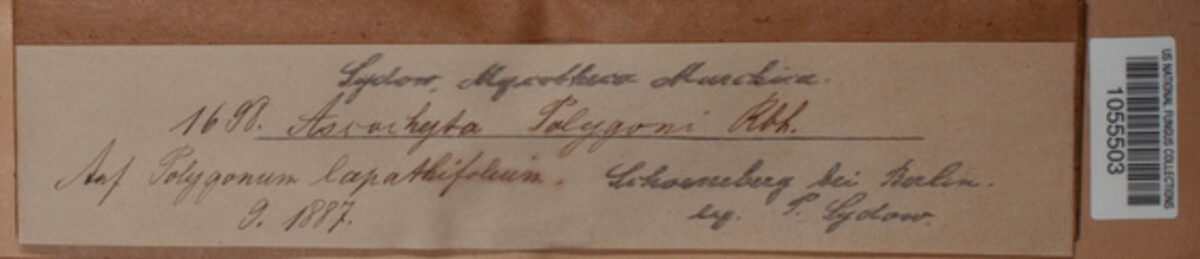 Sydow, Mycotheca Marchica.
1698. Ascochyta Polygoni Rbh.
Auf Polygonum lapathifolium. Schoeneberg bei Berlin.
9. 1887. leg. P. Sydow.
US NATIONAL FUNGUS COLLECTIONS
1055503